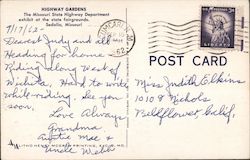 HIGHWAY GARDENS
The Missouri State Highway Department
exhibit at the state fairgrounds.
Sedalia, Missouri
9/17/62-
Dearest Judy and all
Heading for home
Riding along West of
Wichita, Hard to write
while riding. See you
soon.
Love Always
Grandma
Auntie Mae &
Uncle Webb
POST CARD
Miss Judith Elkins
10108 Nichols
Bellflower, Calif.
LIBERTY